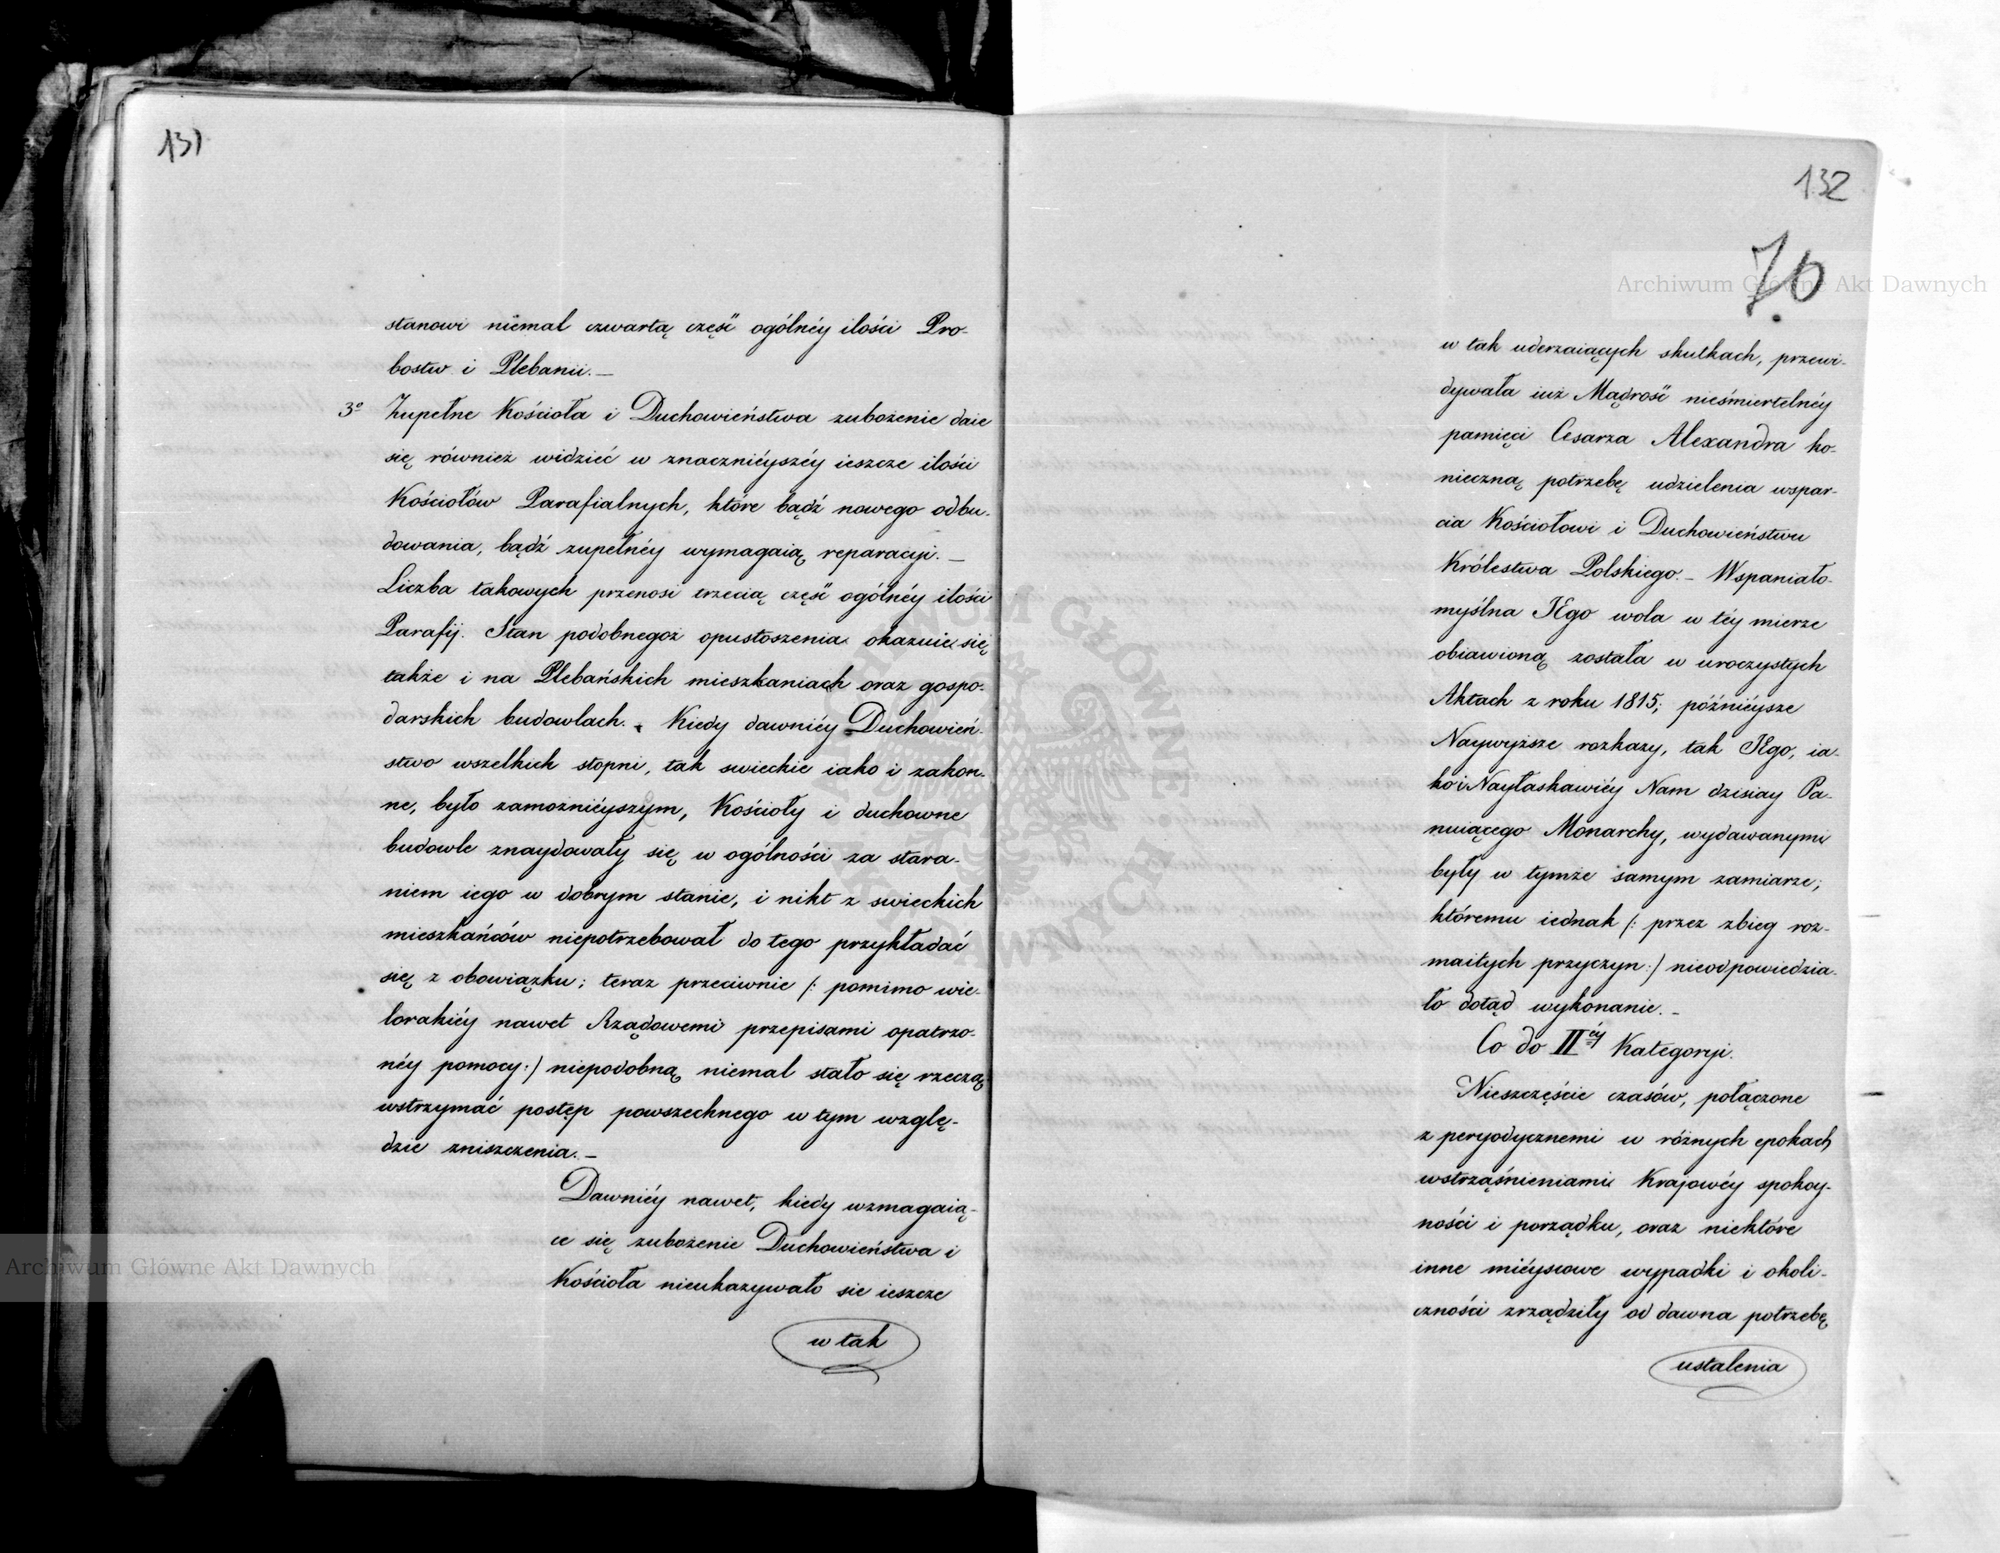 131
stanowi niemal czwartą część ogólnéy ilości Pro-
bostw i Plebanii. —
3º Zupełne Kościoła i Duchowieństwa zubożenie daie
się również widzieć w znacznieyszéy ieszcze ilości
Kościołów Parafialnych, które bądź nowego odbu-
dowania, bądź zupełnéy wymagaią reparacyi. —
Liczba takowych przenosi trzecią część ogólnéy ilości
Parafij. Stan podobnegoż opustoszenia okazuie się
także i na Plebańskich mieszkaniach oraz gospo-
darskich budowlach. Kiedy dawniéy Duchowień-
stwo wszelkich stopni, tak swieckie iako i zakon-
ne, było zamożniéyszym, Kościoły i duchowne
budowle znaydowały się w ogólności za stara-
niem iego w dobrym stanie, i nikt z swieckich
mieszkańców niepotrzebował do tego przykładać
się z obowiązku; teraz przeciwnie /: pomimo wie-
lorakiéy nawet Rządowemi przepisami opatrzo-
néy pomocy :/ niepodobną niemal stało się rzeczą
wstrzymać postęp powszechnego w tym wzglę-
dzie zniszczenia. —
Dawniéy nawet, kiedy wzmagaią-
ce się zubożenie Duchowieństwa i
Kościoła nieukazywało sie ieszcze
w tak
132
70
w tak uderzaiących skutkach, przewi-
dywała iuż Mądrość nieśmiertelnéy
pamięci Cesarza Alexandra ko-
nieczną potrzebę udzielenia wspar-
cia Kościołowi i Duchowieństwu
Królestwa Polskiego. — Wspaniało-
myślna JEgo wola w téy mierze
obiawioną została w uroczystych
Aktach z roku 1815; późniéysze
Naywyższe rozkazy, tak JEgo, ia-
ko i Nayłaskawiéy Nam dzisiay Pa-
nuiącego Monarchy, wydawanymi
były w tymże samym zamiarze;
któremu iednak /: przez zbieg roz-
maitych przyczyn :/ nieodpowiedzia-
ło dotąd wykonanie. —
Co do IIéy Kategoryi.
Nieszczęście czasów, połączone
z peryodycznemi w różnych epokach
wstrząśnieniami Krajowéy spokoy-
ności i porządku, oraz niektóre
inne miéyscowe wypadki i okoli-
czności zrządziły od dawna potrzebę
ustalenia
Archiwum Główne Akt Dawnych
Archiwum Główne Akt Dawnych
ARCHIWUM GŁÓWNE AKT DAWNYCH